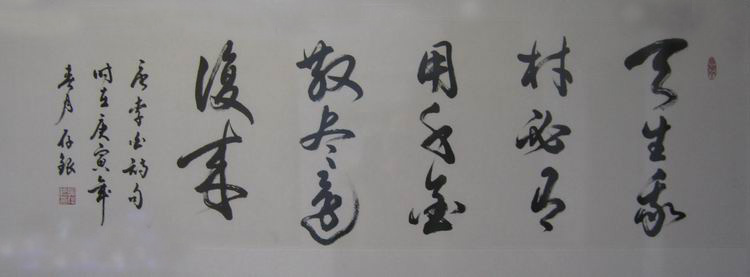 天生我
材必有
用千金
散尽還
復来
唐李白詩句
時在庚寅年
春月存銀